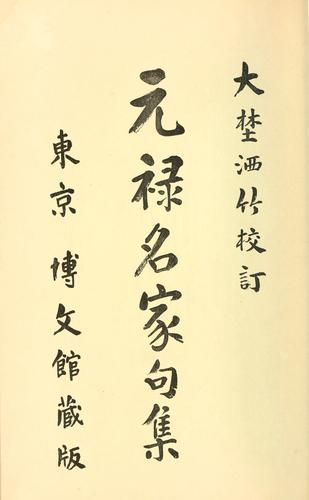 大埜洒竹校訂
元禄名家句集
東京 博文館蔵版